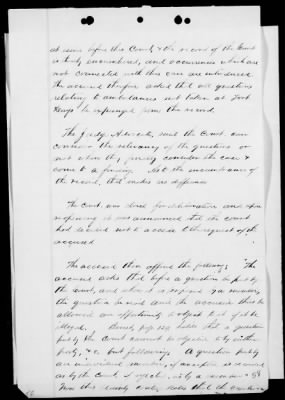 at issue before this Court & the record of the Court
is thereby encumbered, and occurrences which are
not connected with this case are introduced.
The accused therefore asks that all questions
relating to ambulances not taken at Fort
Keogh be expunged from the record.
The Judge Advocate said the Court can
consider the relevancy of the questions or
not when they finally consider the case &
come to a finding. As to the encumbrance of
the record, that makes no difference
The Court was closed for deliberation and upon
reopening it was announced that the court
had decided not to accede to the request of the
accused
The accused then offered the following: "The
accused asks that before a question be put by
the Court, and when it is proposed by a member,
the question be read and the accused thus be
allowed an opportunity to object to it if it be
illegal. page 129 holds that a question
put by the Court cannot be objected to by either
party, & c but following: A question put by
an individual member, if accepted
as by the Court, is